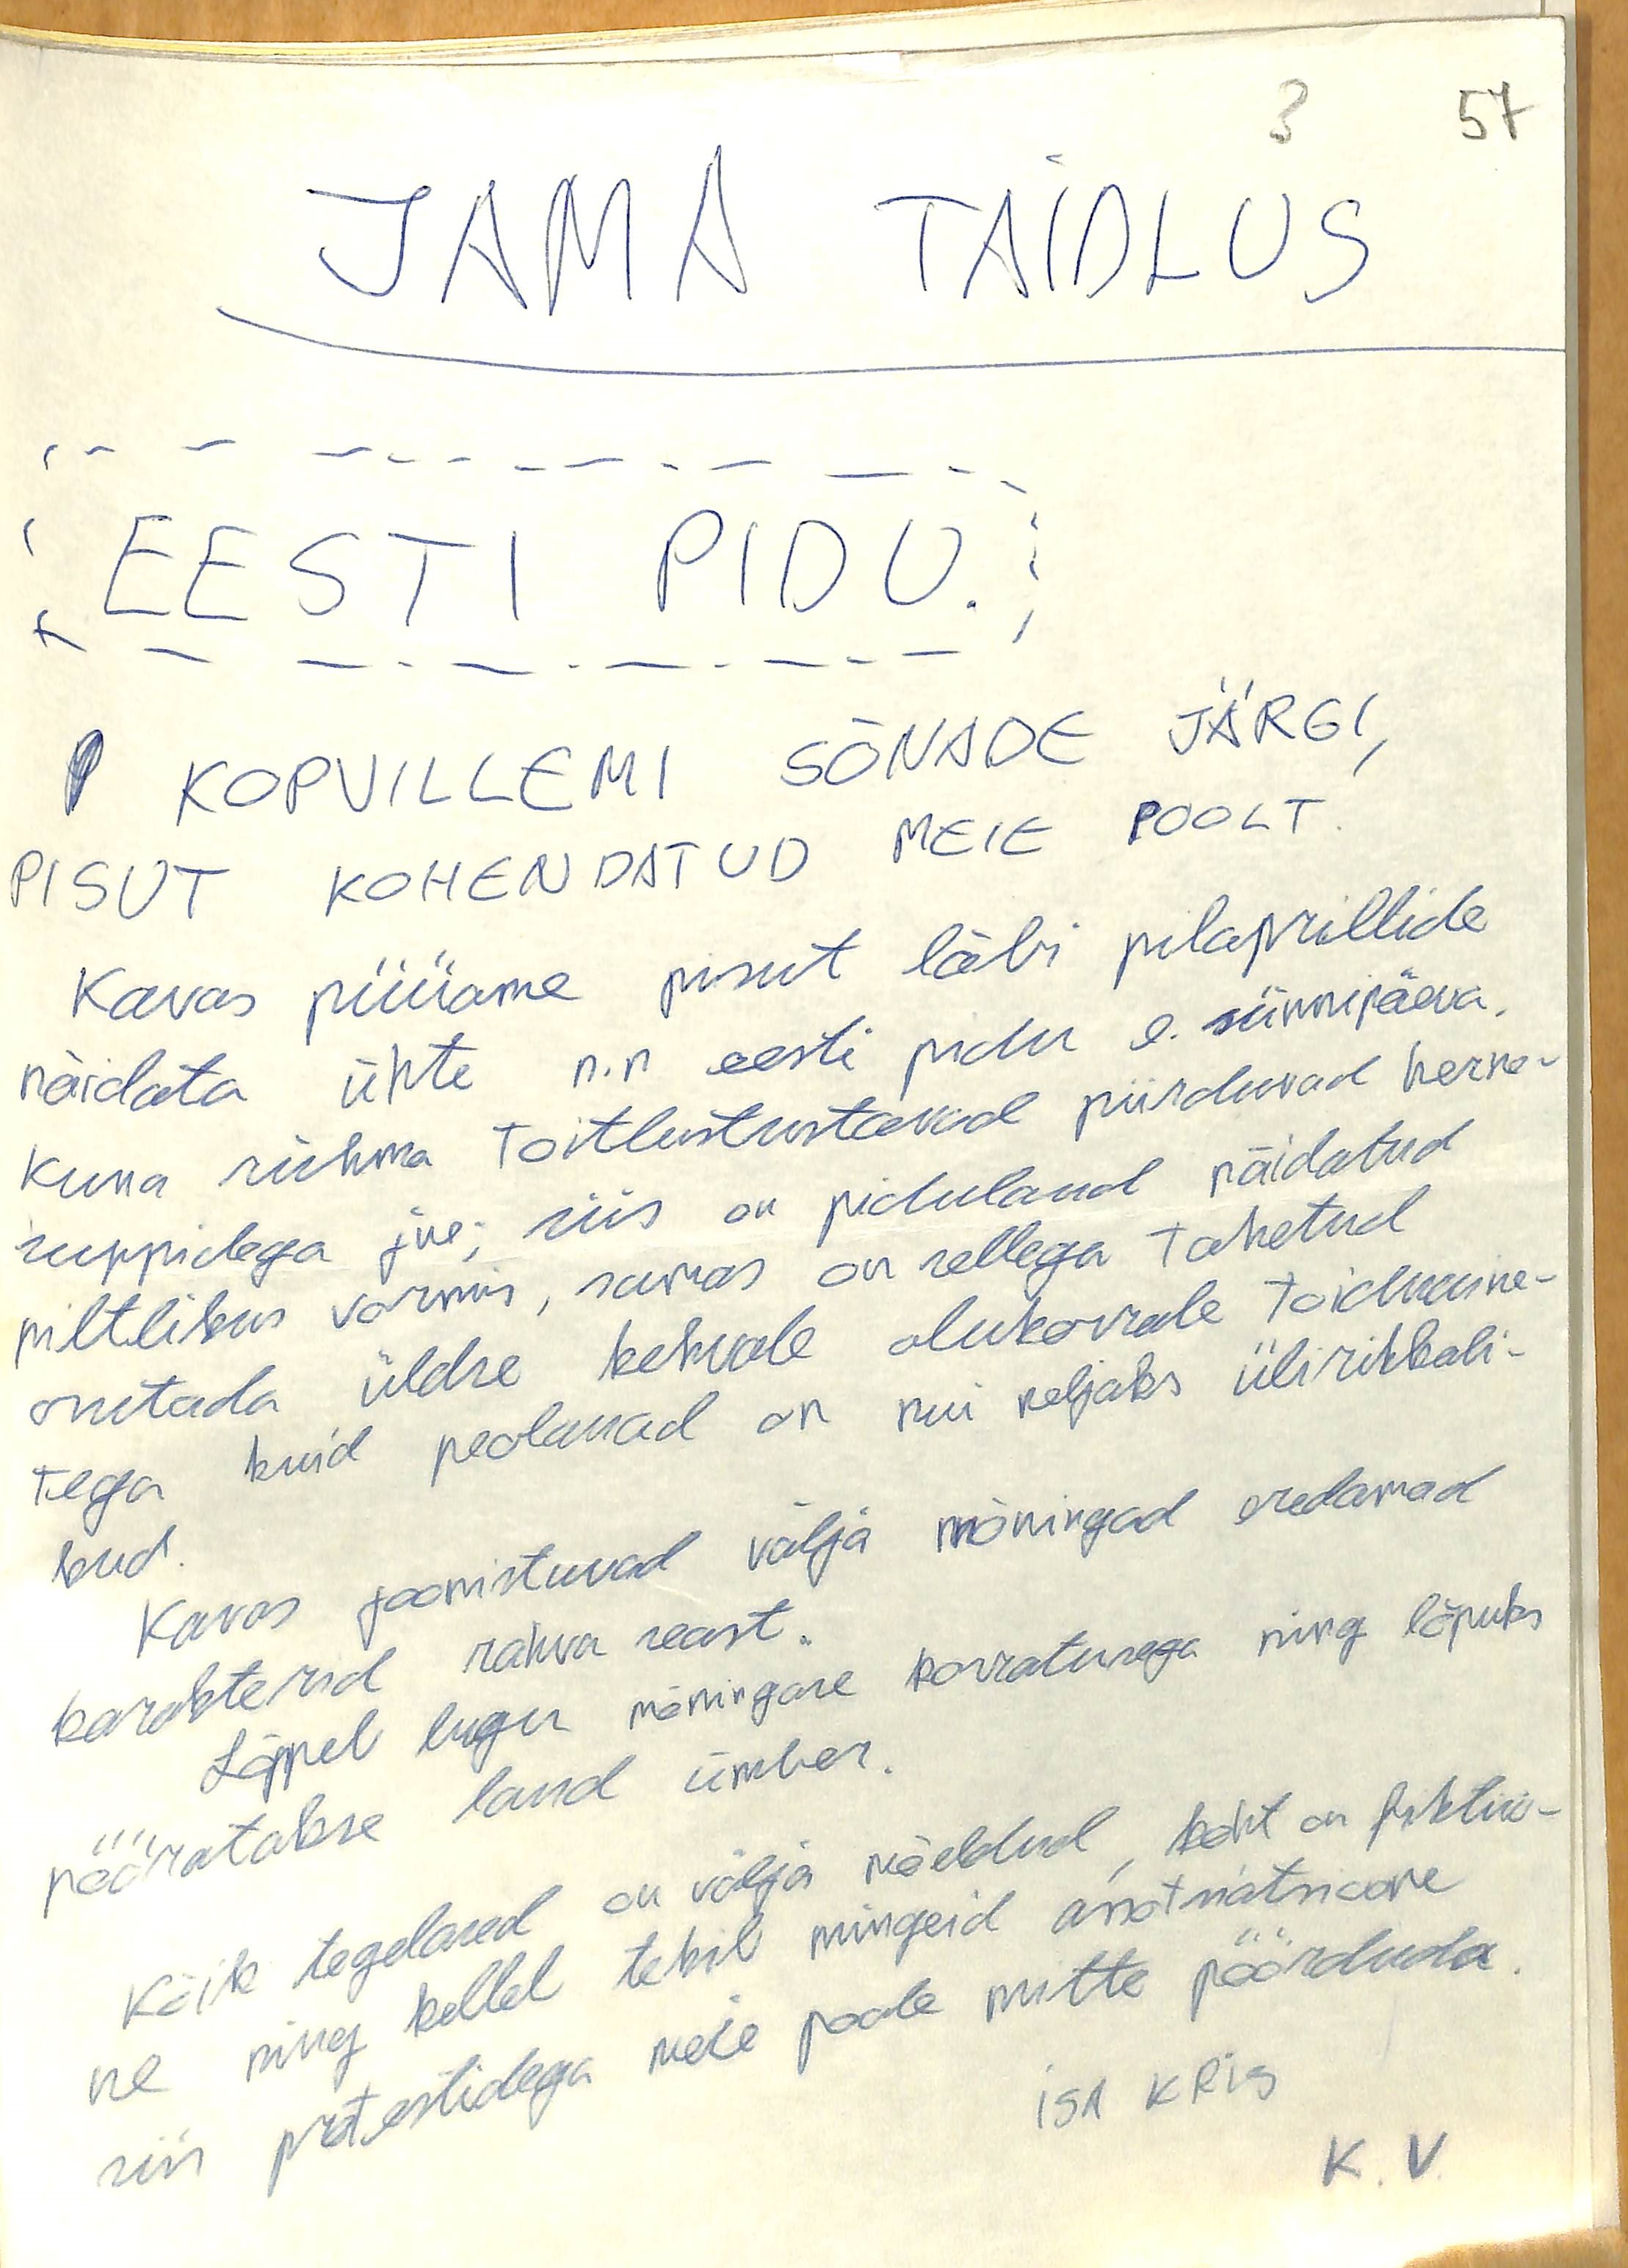 3 57
JAMA TAIDLUS
EESTI PIDU.
KOPVILLEMI SÕNADE JÄRGI,
PISUT KOHENDATUD MEIE POOLT.
Kavas püüüame pisut läbi pilaprillide
näidata ühte n.n eesti pidu e. sünnipäeva.
Kuna rühma toitlustustavad piirduvad herne-
suppidega jne; siis on pidulaud näidatud
piltlikus vormis, samas on sellega tahetud
osutada üldse kehvale olukorrale toiduaine-
tega kuid peolauad on nii neljaks ülirikkali-
kud.
Kavas joonistuvad välja mõningad eredamad
karakterid rahva seast.
Lõppeb lugu mõningase korratusega ning lõpuks
pööratakse laud ümber.
Kõik tegelased on välja mõeldud, koht on fiktiiv-
ne ning kellel tekib mingeid assotsiatsioone
siis protestidega meie poole mitte pöörduda.
ISA KRIS
K. V.